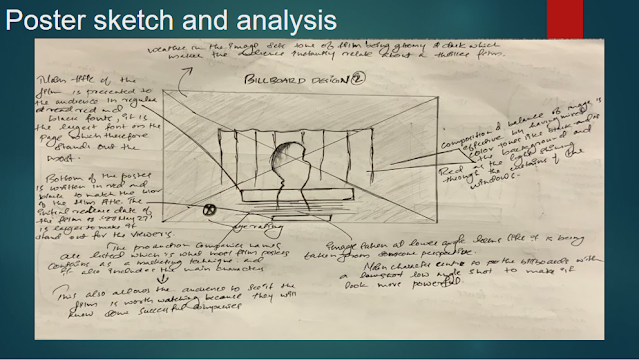 Poster sketch and analysis
weather in the image sets tone of film being gloomy & dark which
makes the audience instantly relate about a thriller film.
BILLBOARD DESIGN ②
Main title of the
film is presented to
the audience in regular
red and
black fonts, it is
the largest font on the
page which therefore
stands out the
most.
Composition & balance of image is
effective by having mixed
color tones like black and
the background and
Red as the light shining
through the curtains of the
windows.
Bottom of the poster
is written in red and
black to match the
of the film title. The
initial release date of
the film is
is larger to make it
stand out for the viewers
age rating
The production companies names
are listed which is what most film posters
contains as a marketing technique and
it also includes the main characters
This also allows the audience to see if the
film is worth watching because they will
know some successful companies
Image taken at lower angle looks like it is being
taken from someone perspective
Main character centre to the billboard with
a longshot low angle shot to make it
look more powerful.